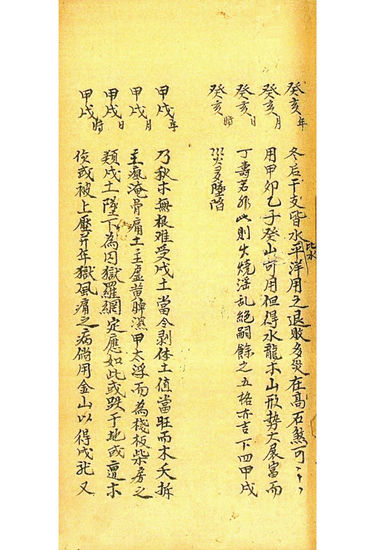 癸亥年
癸亥月
癸亥日
癸亥時
冬后干支皆水平洋用之退敗多災在高石煞可
比水
用甲卯乙子癸山可用但得水龍木山形勢大展富而
丁壽若非此則火燒淫乱絕嗣餘之五格亦吉下四甲戌
災多墜陷
甲戌年
甲戌月
甲戌日
甲戌時
乃秋木無根难受戌土當令剥体土值當旺而木夭拆
主瘋淹骨痛土主虛黃脾濕甲太浮而為棧板柴房之
類戌土墜下為囚獄羅網定應如此或跌于地或壇木
俟或被上壓廾年獄風癆之病倘用金山以得成說又